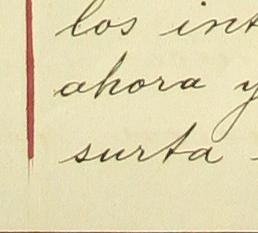 los int
ahora y
surta